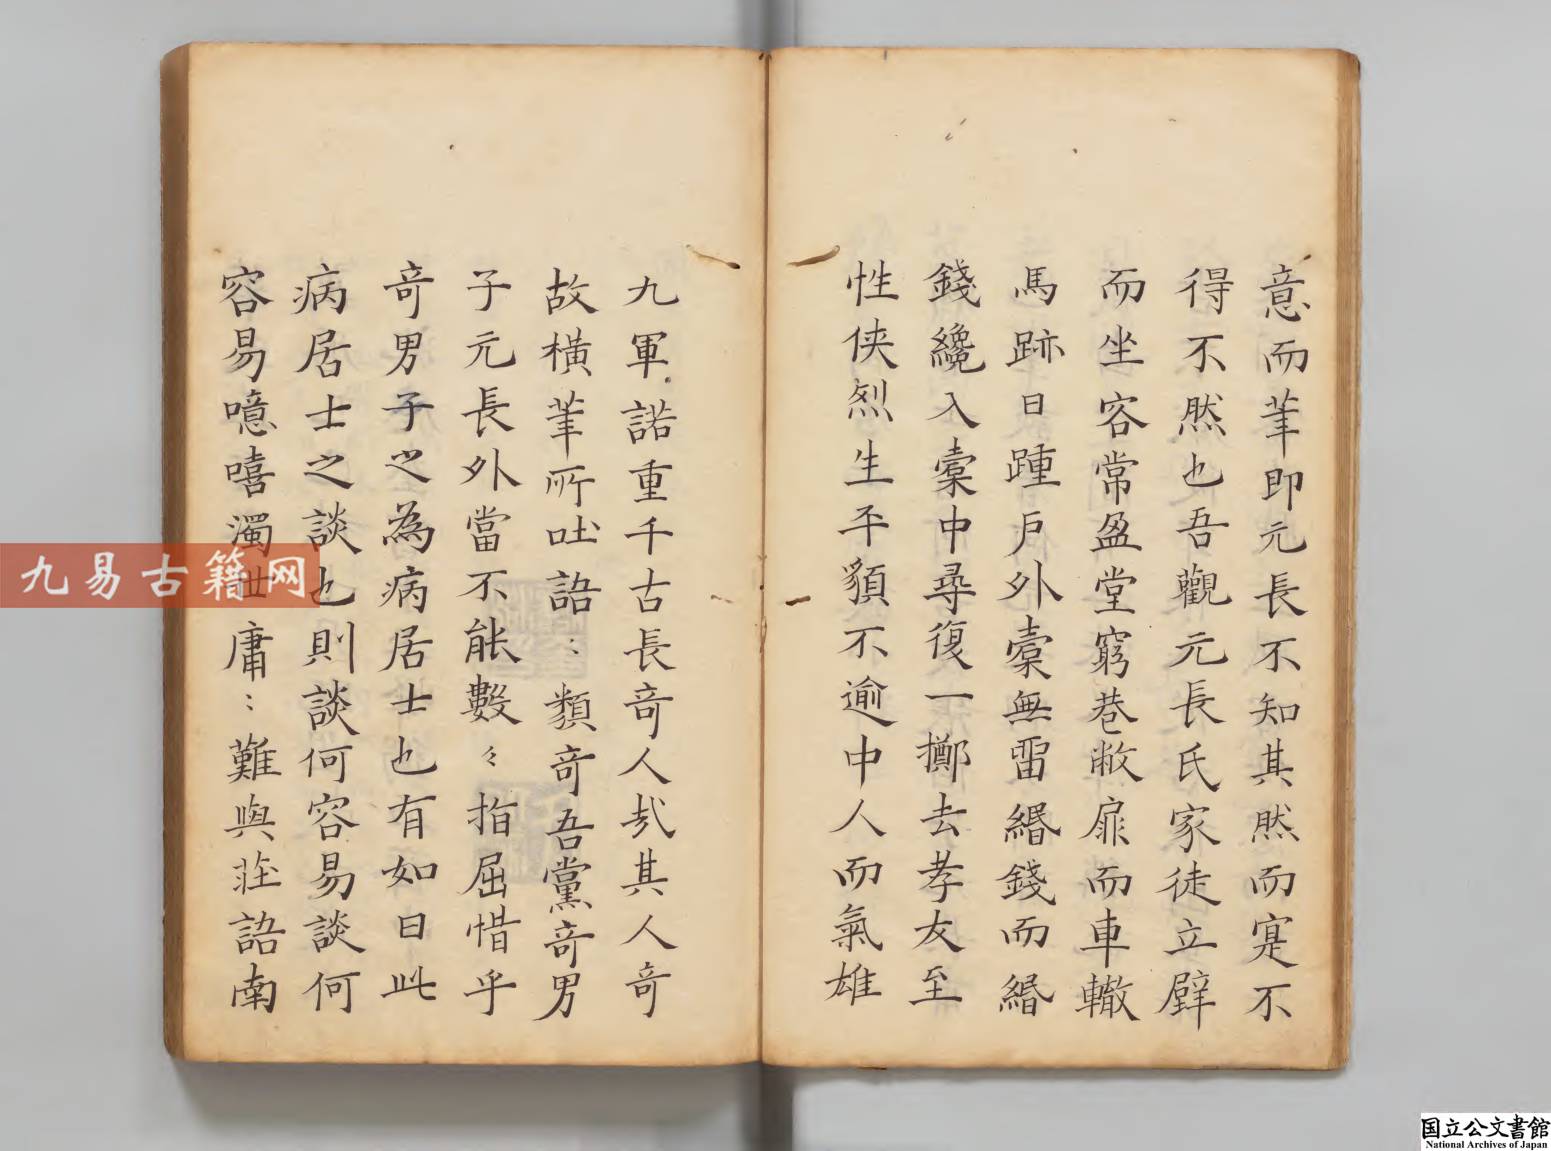 意而筆即元長不知其然而寔不
得不然也吾觀元長氏家徒立壁
而坐容常盈堂窮巷敝扉而車轍
馬跡日踵戶外橐無畱緡錢而緡
錢纔入橐中尋復一擲去孝友至
性俠烈生平貌不逾中人而氣雄
九軍諾重千古長竒人㢤其人竒
故橫筆所吐語〻類竒吾黨竒男
子元長外當不能數〻指屈惜乎
竒男子之為病居士也有如曰此
病居士之談也則談何容易談何
容易噫嘻濁世庸〻難與莊語南
九易古籍网
国立公文書館
National Archives of Japan